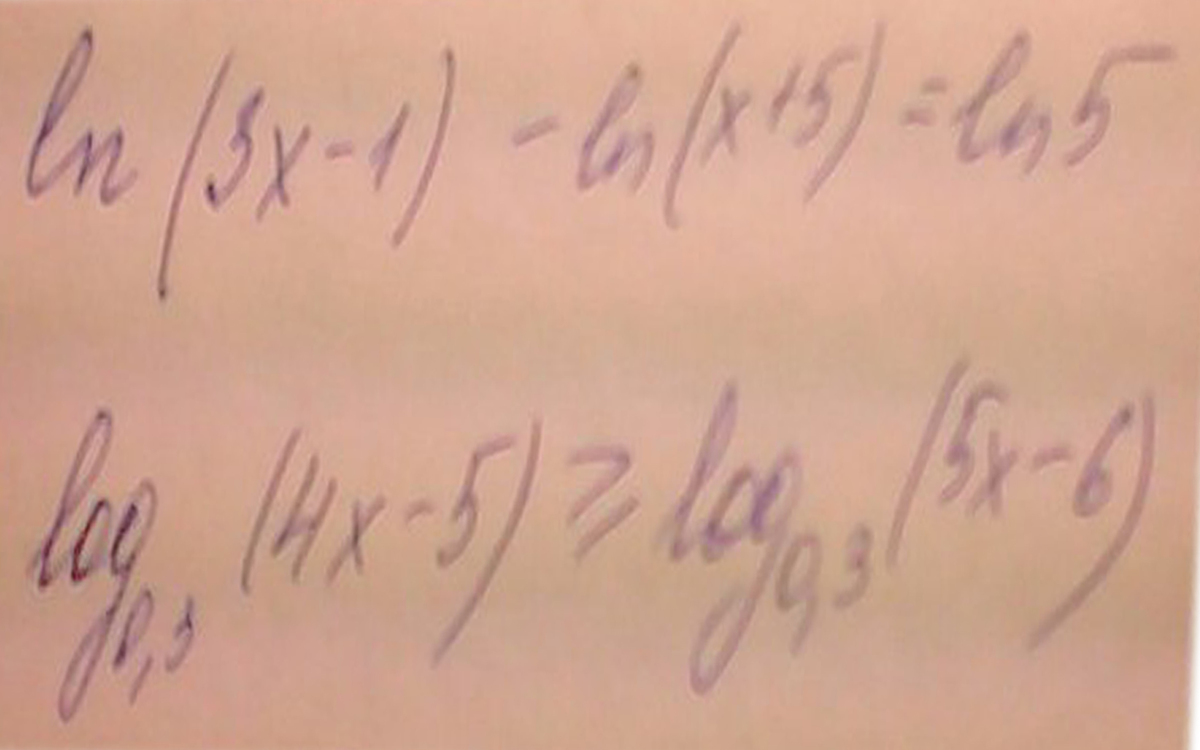 ln (3x-1) - ln (x+5) = ln 5
log₀,₃ (4x-5) ≥ log₀,₃ (5x-6)